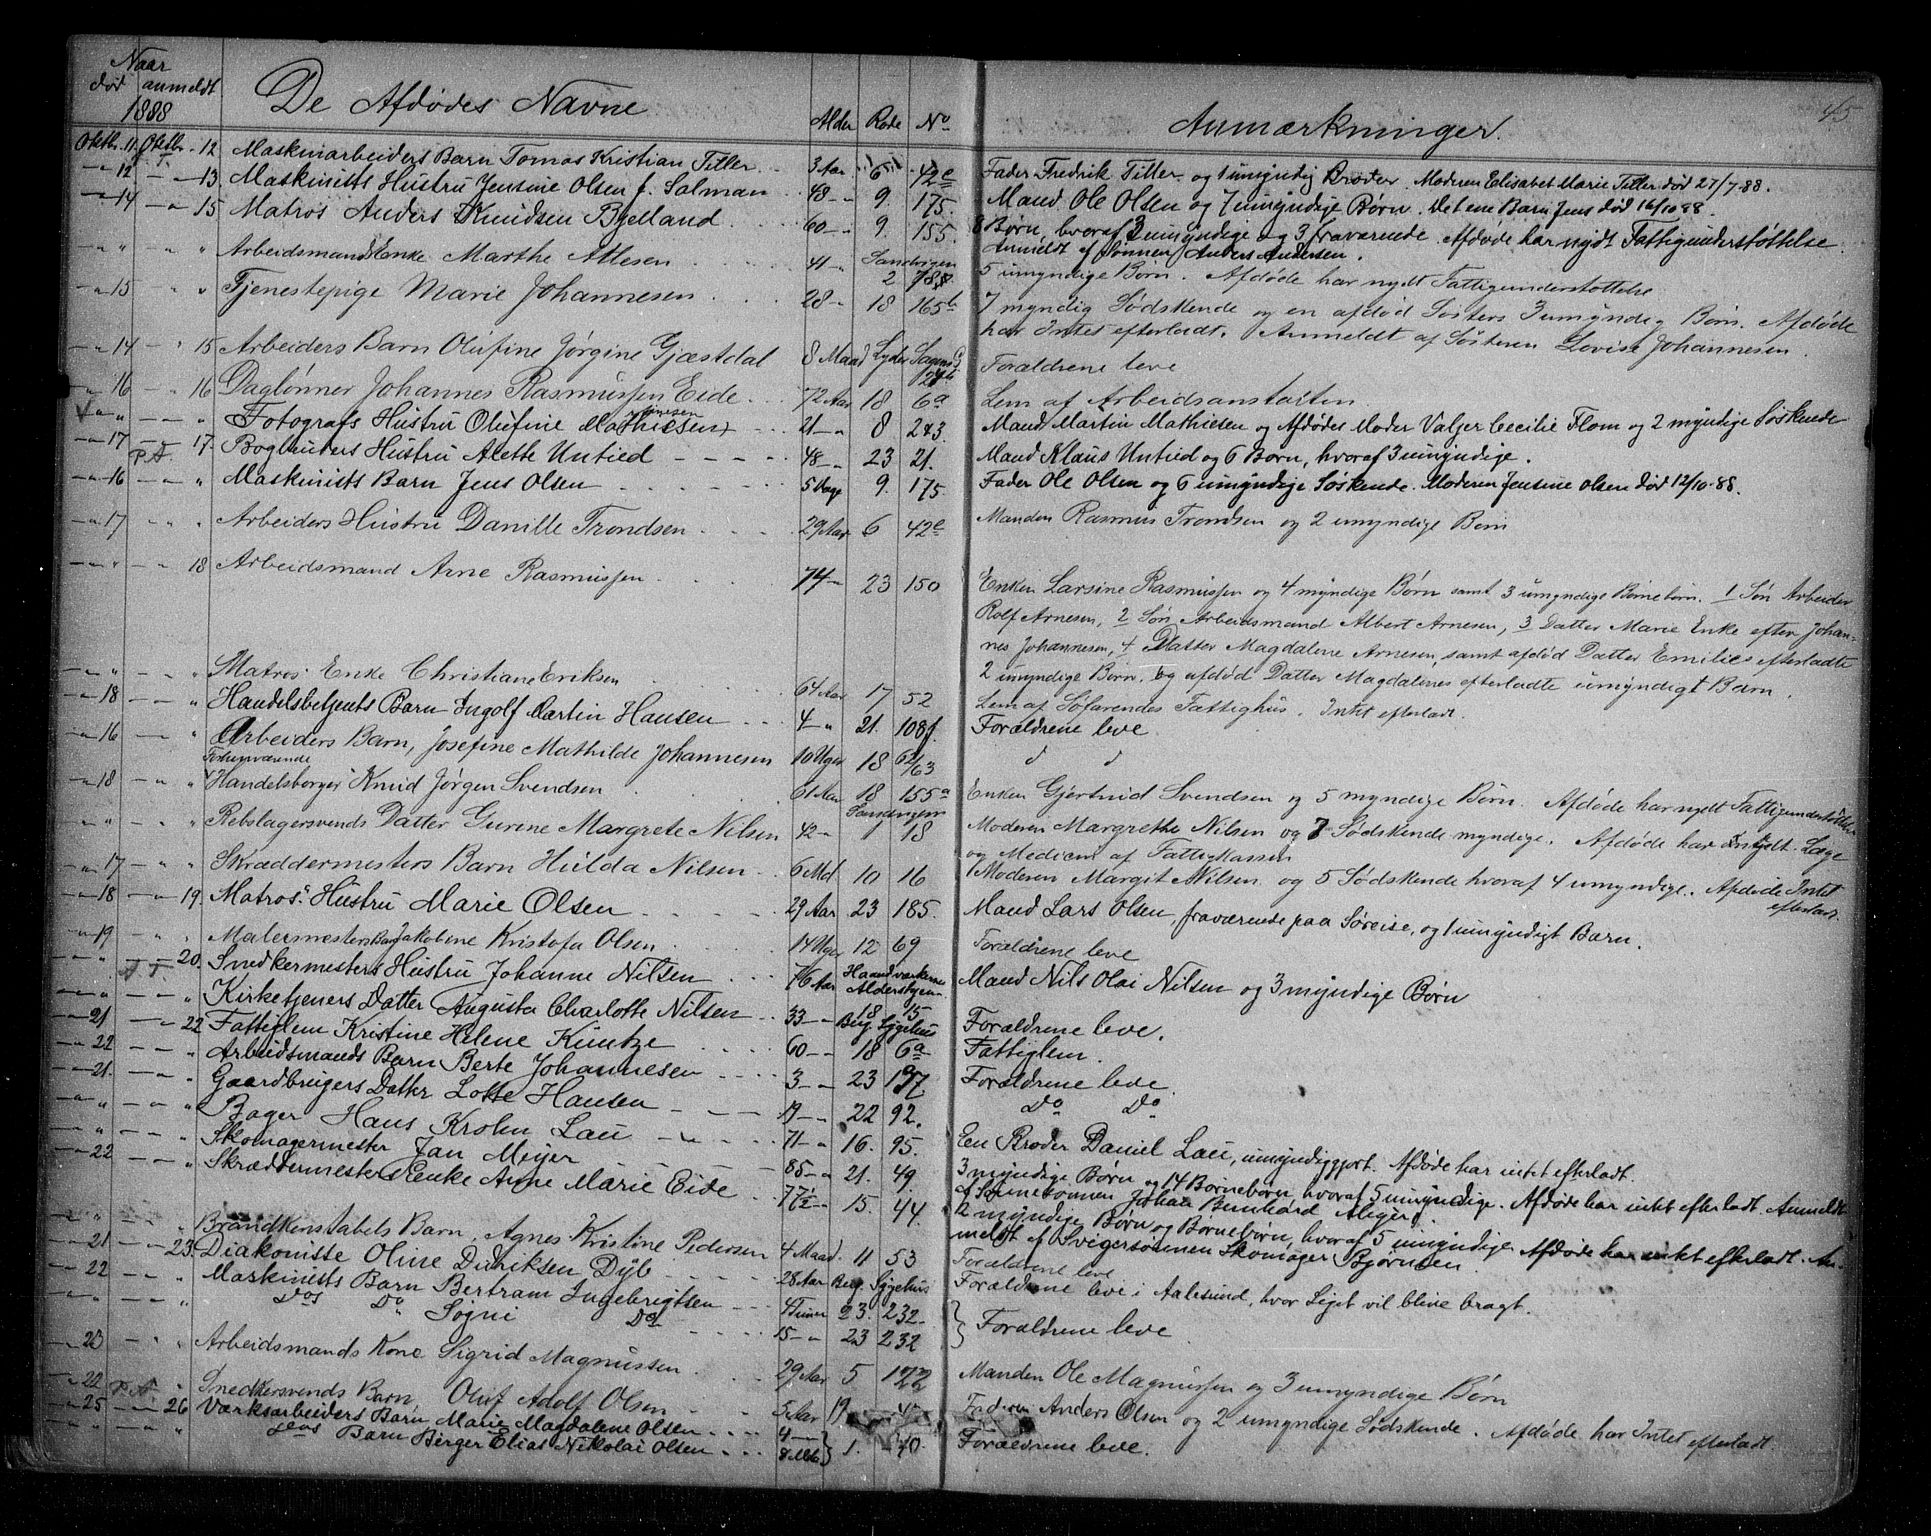 45
Naar
død anmeldt De Afdødes Navne Alder Rode No Anmærkninger.
1888
Oktbr. 11. Oktbr. 12 Maskinarbeiders Barn Tomas Kristian Titler 3 Aar 6 42e Fader Fredrik Titler og 1 umyndig Broder. Moderen Elisabet Marie Titler død 27/7.88.
" 12 " 13. Maskinists Hustru Jensine Olsen f. Salman 48 " 9. 175. Mand Ole Olsen og 7 umyndige Børn. Det ene Barn Jens død 16/10 88.
" 14 " 15 Matros Anders Knudsen Bjelland 60 " 9. 155. 8 Børn, hvoraf 3 umyndige og 3 fraværende. Afdøde har nydt Fattigunderstøttelse.
Anmeldt af Sønnen Anders Andersen.
" " " " Arbeidsmands Enke Marthe Atlesen 41 " Sandvigen 2 788 5 umyndige Børn. Afdøde har nydt Fattigunderstøttelse
" 15 " " Tjenestepige Marie Johannesen 28 " 18 165b 7 myndig Sødskende og en afdød Søsters 3 umyndig Børn. Afdøde
har Intet efterladt. Anmeldt af Søsteren Lovise Johannesen.
" 14 " 15 Arbeiders Barn Olufine Jørgine Gjæstdal 8 Maad Lyder Sagens G. Forældrene leve
" 16 " 16 Daglønner Johannes Rasmussen Eide 72 Aar 18 6a Lem af Arbeidsanstalten
" " " " Fotografs Hustru Olufine Mathiesen 21 " 8 243. Mand Martin Mathiesen og Afdødes Moder Valjer Cecilie Flom og 2 myndige Søskende
" 17 P.A. 17. Bogbinders Hustru Alette Untied 48 " 23 21. Mand Klaus Untied og 6 Børn, hvoraf 3 umyndige.
" 16 " " Maskinists Barn Jens Olsen 5 Dage 9. 175 Fader Ole Olsen og 6 umyndige Søskende. Moderen Jensine Olsen død 12/10.88.
" 17 " " Arbeiders Hustru Danille Trondsen 29 Aar 6 42e Manden Rasmus Trondsen og 2 umyndige Børn
" " " 18 Arbeidsmand Arne Rasmussen 74 " 23 150 Enken Larsine Rasmussen og 4 myndige Børn samt 3 umyndige Børnebørn. 1 Søn Arbeider
Rolf Arnesen, 2 Søn Arbeidsmand Albert Arnesen, 3 Datter Marie Enke efter Johan-
nes Johannesen, 4 Datter Magdalene Arnesen, samt afdød Datter Emilies efterladte
2 umyndige Børn. og afdød Datter Magdalenes efterladte umyndigt Barn.
" " Matros Enke Christiane Eriksen 64 Aar 17 52 Lem af Søfarendes Fattighus. Intet efterladt.
" 18 " " Handelsbetjents Barn Ingolf Martin Hansen 4 " 21. 108f. Forældrene leve
" 16 " " Arbeiders Barn, Josefine Mathilde Johannesen 10 Uger 18 62/63 d d
Forhenværende
" 18 " " Handelsborger Knud Jørgen Svendsen 61 Aar 18 155a Enken Gjertrud Svendsen og 5 myndige Børn. Afdøde har nydt Fattigunderstøttelse
" " " " Rebslagersvends Datter Gurine Margrete Nilsen 42 " Sandvigen 1 18 Moderen Margrethe Nilsen og 7 Sødskende myndige. Afdøde har nydt Læge
og Medicin af Fattigkassen
" 17 " " Skræddermesters Barn Hulda Nilsen 6 Md 10 16 Moderen Margit Nilsen og 5 Sødskende hvoraf 4 umyndige. Afdøde Intet
efterladt.
" 18 " 19. Matros Hustru Marie Olsen 29 Aar 23 185. Mand Lars Olsen, fraværende paa Søreise, og 1 umyndigt Barn.
" 19 " " Malermesters Barn Jakobine Kristofa Olsen 14 Uger 12 69 Forældrene leve
" " 20. Snedkermesters Hustru Johanne Nilsen 76 Aar Haandværkernes Aldershjem Mand Nils Olai Nilsen og 3 myndige Børn
" " " " Kirketjeners Datter Augusta Charlotte Nilsen 33 " 18 15 Berg. Sygehus Forældrene leve.
" 21 " 22 Fattiglem Kristine Helene Kuntze 60 " 18 6a Fattiglem.
" 22 " " Arbeidsmands Barn Berte Johannesen 3 " 23 137 Forældrene leve
" 21. " " Gaardbrugers Datter Lotte Hansen 19 " 22 92. Do Do
" " " " Bager Hans Krohn Lau 71 " 16. 95. En Broder Daniel Lau, umyndiggjort. Afdøde har intet efterladt.
" " " " Skomagermester Jan Meyer 85 " 21. 49. 3 myndige Børn og 14 Børnebørn, hvoraf 5 umyndige. Afdøde har intet efterladt. Anmeldt
af Sønnesønnen Johan Bernhard Meyer.
" 22 " " Skræddermesters Enke Anne Marie Eide 77½ " 15. 44. 2 myndige Børn og Børnebørn, hvoraf 5 umyndige. Afdøde har intet efterladt. An-
meldt af Svigersønnen Skomager Bjørnsen.
" " " " Brandkonstabels Barn, Agnes Kristine Pedersen 4 Maad. 11 53 Forældrene leve
" 21 " 23. Diakonisse Oline Didriksen Dyb 28 Aar Berg. Sygehus Forældrene leve i Aalesund, hvor Liget vil blive bragt.
" 22 " " Maskinists Barn Bertram Ingebrigtsen 4 Timer 23. 232. } Forældrene leve
" " " " Dos Do Søgni Do 15 " 23 232
" 23 " " Arbeidsmands Kone Sigrid Magnussen 29 Aar 5 122 Manden Ole Magnussen og 3 umyndige Børn
" 22 P.A. " Snedkersvends Barn, Oluf Adolf Olsen 5 Aar 19 Faderen Anders Olsen og 2 umyndige Sødskende. Afdøde har Intet efterladt
" 25 " 26 Værksarbeiders Barn Marie Magdalene Olsen 4 " } 1. 40. Forældrene leve.
" " " " Barn Birger Elias Nikolai Olsen 8 Mdr